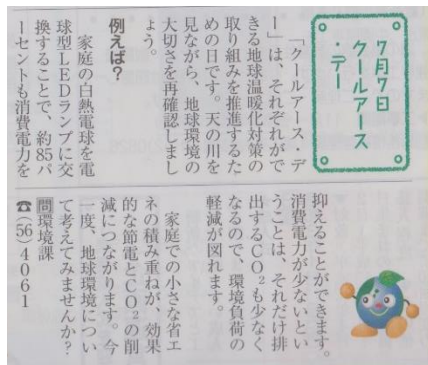 7月7日
クールアース
・デー
「クールアース・デ
ー」は、それぞれがで
きる地球温暖化対策の
取り組みを推進するた
めの日です。天の川を
見ながら、地球環境の
大切さを再確認しまし
ょう。
例えば？
家庭の白熱電球を電
球型ＬＥＤランプに交
換することで、約85パ
ーセントも消費電力を
抑えることができます。
消費電力が少ないとい
うことは、それだけ排
出するＣＯ₂も少なく
なるので、環境負荷の
軽減が図れます。
家庭での小さな省エ
ネの積み重ねが、効果
的な節電とＣＯ₂の削
減につながります。今
一度、地球環境につい
て考えてみませんか？
問環境課
☎(56)4061